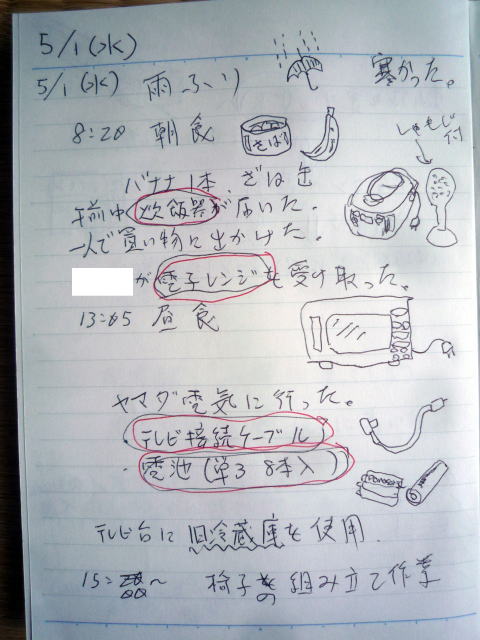 5/1(水)
5/1(水) 雨ふり 寒かった。
8:20 朝食
さば
しゃもじ付
バナナ1本、さば缶
午前中炊飯器が届いた。
一人で買い物に出かけた。
が電子レンジを受け取った。
13:05 昼食
ヤマダ電気に行った。
・テレビ接続ケーブル
・電池(単3 8本入)
Panasonic
テレビ台に旧冷蔵庫を使用.
15:00～ 椅子の組み立て作業